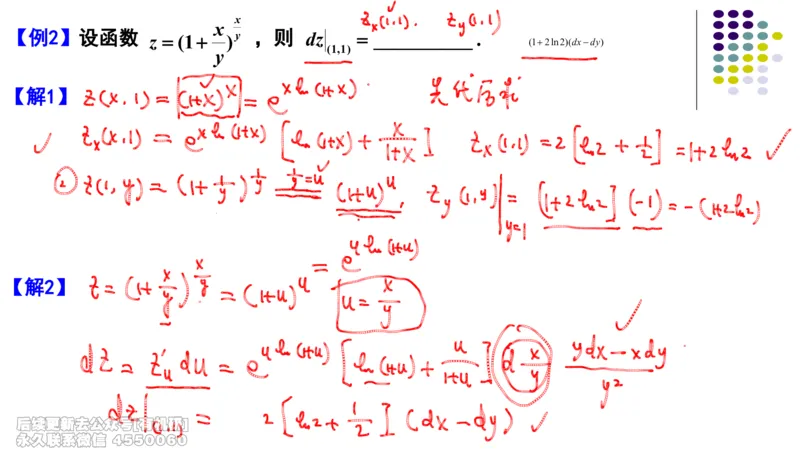 【例2】设函数 z=(1+x/y)^(x/y) ，则 dz|(1,1) = ________ . z_x(1,1). z_y(1,1) (1+2ln2)(dx−dy)
【解1】 z(x,1) = (1+x)^x = e^(x ln(1+x)) 先代后求
✓ z_x(x,1) = e^(x ln(1+x)) [ln(1+x) + x/(1+x)] z_x(1,1) = 2[ln2 + 1/2] = 1+2ln2 ✓
② z(1,y) = (1+1/y)^(1/y) 1/y=u (1+u)^u, z_y(1,y)|y=1 = [1+2ln2](-1) = -(1+2ln2)
= e^(u ln(1+u))
【解2】 z = (1+x/y)^(x/y) = (1+u)^u u = x/y
dz = z'_u du = e^(u ln(1+u)) [ln(1+u) + u/(1+u)] d x/y (ydx−xdy)/y² ✓
dz|(1,1) = 2[ln2 + 1/2](dx−dy) ✓
永久联系微信 4550060